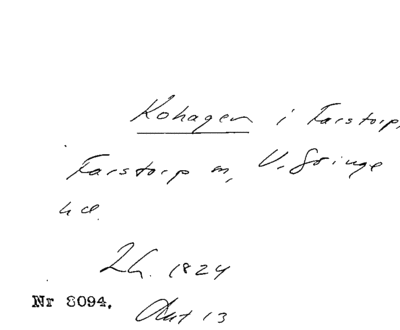 Kohagen i Farstorp,
Farstorp sn, V. Göinge
hd.
Lh. 1824
Nr 8094. Akt 13